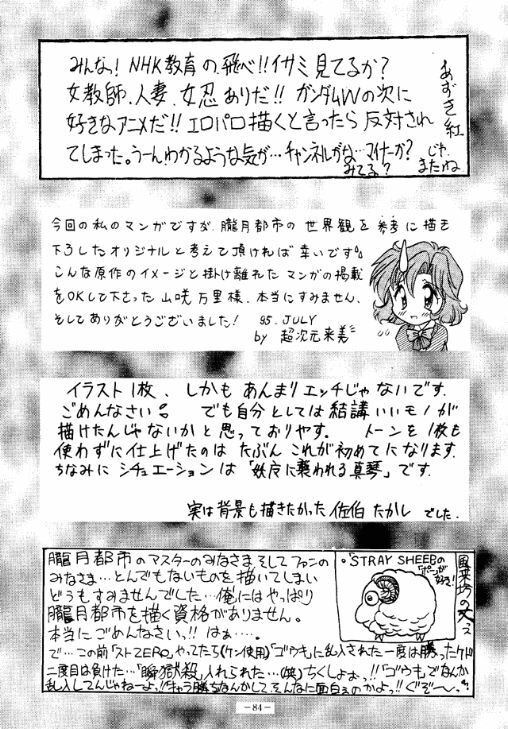 みんな! NHK教育の、飛べ!!イサミ見てるか?
女教師、人妻、女忍ありだ!! ガンダムWの次に
好きなアニメだ!! エロパロ描くと言ったら反対され
てしまった。うーんわかるような気が…チャンネルがな…マイナーか?
みてる?
あずき紅
じゃ、
またね
今回の私のマンガですが、朧月都市の世界観を参考に描き
下ろしたオリジナルと考えて頂ければ幸いです。
こんな原作のイメージと掛け離れたマンガの掲載
をOKして下さった山咲万里様、本当にすみません、
そしてありがとうございました!
95. JULY
by 超次元来美
イラスト1枚、しかもあんまりエッチじゃないです。
ごめんなさい。 でも自分としては結講いいモノが
描けたんじゃないかと思っておりやす。 トーンを1枚も
使わずに仕上げたのはたぶんこれが初めてになります。
ちなみにシチュエーションは「妖に襲われる真琴」です。
実は背景も描きたかった 佐伯たかし でした.
朧月都市のマスターのみなさまそしてファンの
みなさま…とんでもないものを描いてしまい
どうもすみませんでした…俺にはやっぱり
朧月都市を描く資格がありません。
本当にごめんなさい。!! はぁ…。
で…この前「ストZERO」やってたら(ケン使用)「ゴウキ」に乱入された一度は勝ったケド
二度目は負けた…「瞬獄殺」入れられた…(哭)ちくしょお!!「ゴウキ」でなんか
乱入してんじゃねーよ!!キャラ勝ちなんかしてそんなに面白えのかよっ!!ぐぞ〜。
・"STRAY SHEEP"の
"ポー"が
好き!
風来坊の
-84-